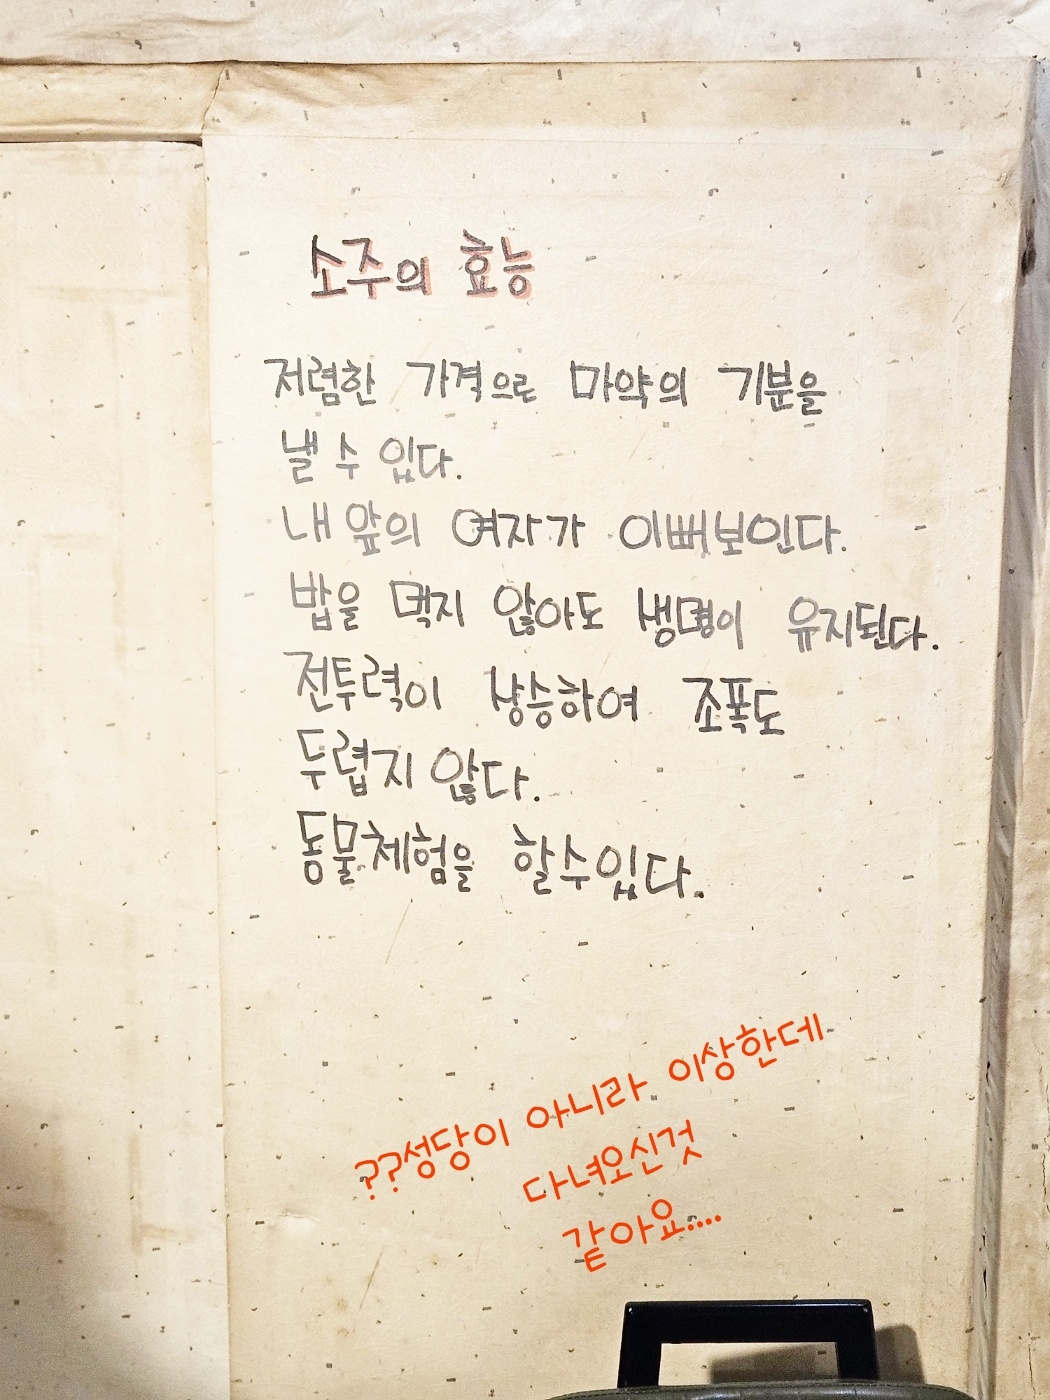 소주의 효능
저렴한 가격으로 마약의 기분을
낼 수 있다.
내 앞의 여자가 이뻐보인다.
밥을 먹지 않아도 생명이 유지된다.
전투력이 상승하여 조폭도
두렵지 않다.
동물체험을 할수있다.
??성당이 아니라 이상한데
다녀오신것
같아요....